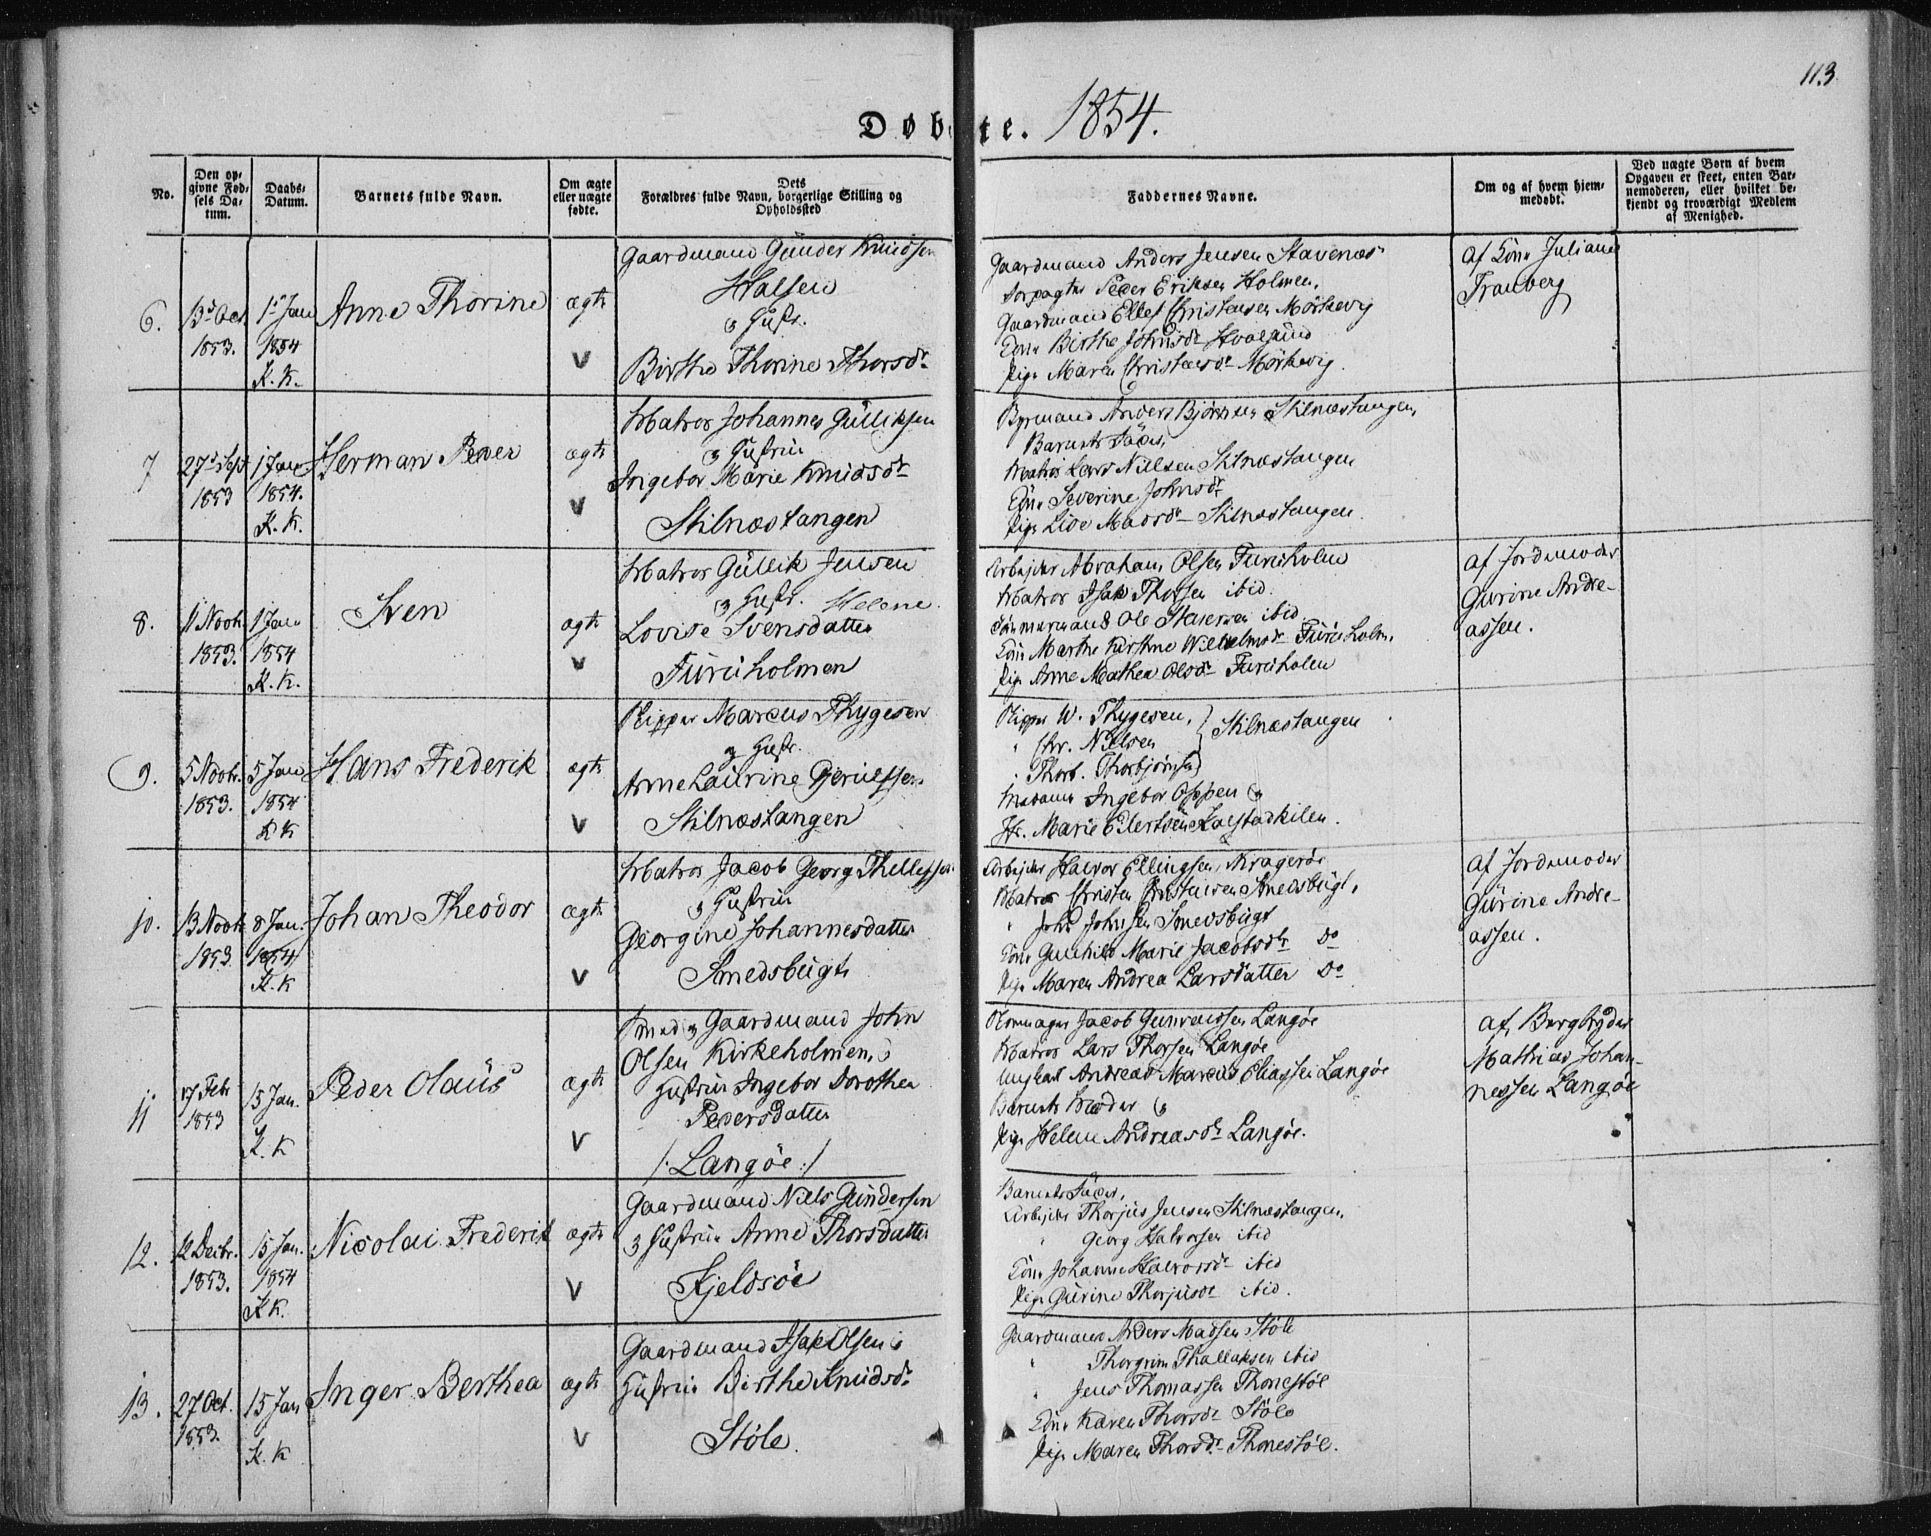 113
Døbte. 1854.
No.
Den op-
givne Fød-
sels Da-
tum.
Daabs-
Datum.
Barnets fulde Navn.
Om ægte
eller uægte
fødte.
Dets
Forældres fulde Navn, borgerlige Stilling og
Opholdssted
Faddernes Navne.
Om og af hvem hjem-
medøbt.
Ved uægte Børn af hvem
Opgaven er skeet, enten Bar-
nemoderen, eller hvilket be-
kjendt og troværdigt Medlem
af Menighed.
6.
13de Oct.
1853.
1ste Jan
1854
K. K.
Anne Thorine
ægte
v
Gaardmand Gunder Knudsen
Halsen
og Hustr.
Birthe Thorine Thorsdr
Gaardmand Anders Jensen Stavenæs
Peder Eriksen Holmen.
Gaardmand Ellef Christensen Mörkevig
Kone Birthe Johnsdr
Pige Maren Christensdr Mörkevig.
af Kone Juliane
Tranberg
7
27de Sept
1853
1 Jan
1854.
K. K.
Herman Peder
ægte
v
Matros Johannes Gulliksen
og Hustrue
Ingebor Marie Knudsdr
Stilnæstangen
Anders Bjørnsen Stilnæstangen,
Barnets Fader,
Matros Lars Nielsen Stilnæstangen
Kone Severine Johnsdr
Pige Lise Madsdr Stilnæstangen.
8.
11 Novbr.
1853.
1 Jan
1854
K. K.
Sven
ægte
v
Matros Gullik Jensen
og Hustr. Helene
Lovise Svensdatter
Furuholmen
Arbeider Abraham Olsen Furuholm
Matros Isak Thorsen ibid.
Tömmermand Ole ibid
Kone Marthe Kirstine Wilhelmsdr Furuholm.
Pige Anne Mathea Olsdr Furuholm
af Jordemoder
Gurine Andre-
assen.
9.
5 Novbr.
1853.
5 Jan
1854
K K
Hans Frederik
ægte
v
Skipper Marcus Thygesen
og Hustr.
Anne Laurine
Stilnæstangen
Skipper W. Thygesen,
" Chr. Nielsen } Stilnæstangen
" Thorb. Thorbjørnsen
Madame Ingebor Oppen og
Jfr. Marie Eilertsen Kalstadkilen.
10.
13 Novbr
1853.
8 Jan.
1854
K. K
Johan Theodor
ægte
v
Matros Jacob Georg Thellefsen
og Hustrue
Georgine Johannesdatter
Smedsbugt
Arbeider Halvor Ellingsen, Kragerøe
Matros Christen Christensen Smedsbugt,
" John Johnsen Smedsbugt
Kone Gunhild Marie Jacobsdr Do
Pige Maren Andrea Larsdatter Do
af Jordemoder
Gurine Andre-
assen.
11
17 Febr
1853
15 Jan.
K. K
Peder Olaus
ægte
v
Smed og Gaardmand John
Olsen Kirkeholmen,
Hustrue Ingebor Dorothea
Pedersdatter
/: Langöe :/
Skomager Jacob Langöe
Matros Lars Thorsen Langöe
Ungkarl Andreas Marcus Eliassen Langöe
Barnets Moder og
Pige Helene Andreasdr Langöe.
af Bergbryder
Mathias Johan-
nessen Langöe
12.
12 Decbr.
1853.
15 Jan.
1854
K K.
Nicolai Frederik
ægte
v
Gaardmand Niels Gundersen
og Hustrue Anne Thorsdatter
Fjeldsöe
Barnets Fader,
Arbeider Thorjus Jensen Stilnæstangen,
" Georg Halvorsen ibid
Kone Johanne Halvorsdr ibid
Pige Gurine Thorjusdr ibid.
13.
27 Oct.
1853.
15 Jan
K. K
Inger Berthea
ægte
v
Gaardmand Isak Olsen
Hustrue Birthe Knudsdr
Stöle.
Gaardmand Anders Madsen Stöle
" Thorgrim Thallaksen ibid
" Jens Thomassen Thonestöl
Kone Karen Thorsdr Stöle
Pige Maren Thorsdr Thonestöl.